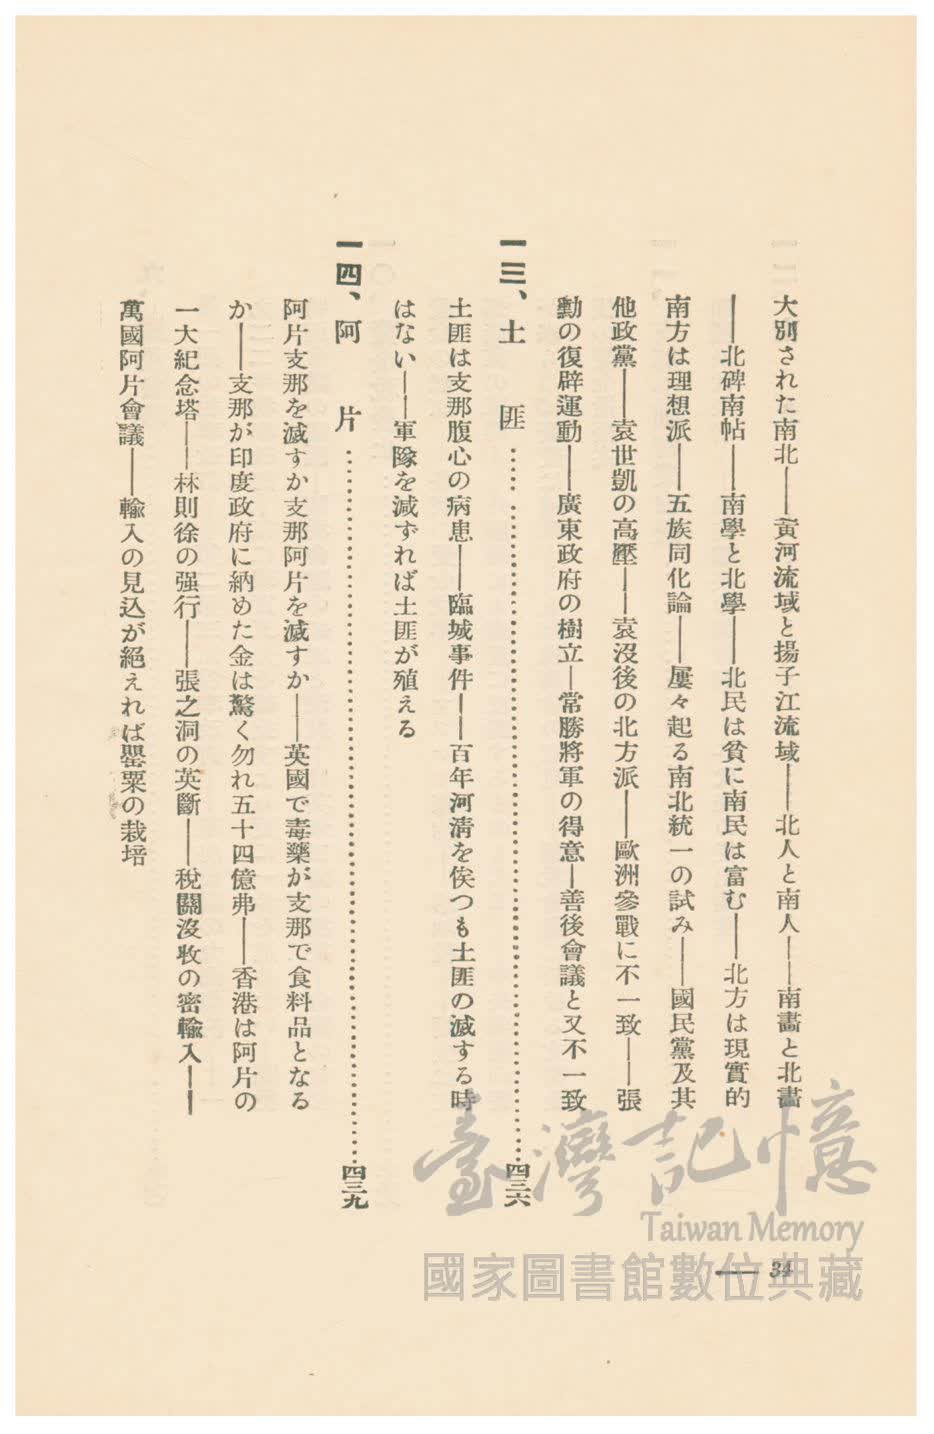 大別された南北――黃河流域と揚子江流域――北人と南人――南畵と北畵
――北碑南帖――南學と北學――北民は貧に南民は富む――北方は現實的
南方は理想派――五族同化論――屢々起る南北統一の試み――國民黨及其
他政黨――袁世凱の高壓――袁沒後の北方派――歐洲參戰に不一致――張
勳の復辟運動――廣東政府の樹立―常勝將軍の得意―善後會議と又不一致
一三、土匪……………………………………………………四三六
土匪は支那腹心の病患――臨城事件――百年河淸を俟つも土匪の滅する時
はない――軍隊を減ずれば土匪が殖える
一四、阿片……………………………………………………四三九
阿片支那を滅すか支那阿片を滅すか――英國で毒藥が支那で食料品となる
か――支那が印度政府に納めた金は驚く勿れ五十四億弗――香港は阿片の
一大紀念塔――林則徐の强行――張之洞の英斷――稅關沒收の密輸入――
萬國阿片會議――輸入の見込が絕えれば罌粟の栽培
―― 34
臺灣記憶
Taiwan Memory
國家圖書館數位典藏